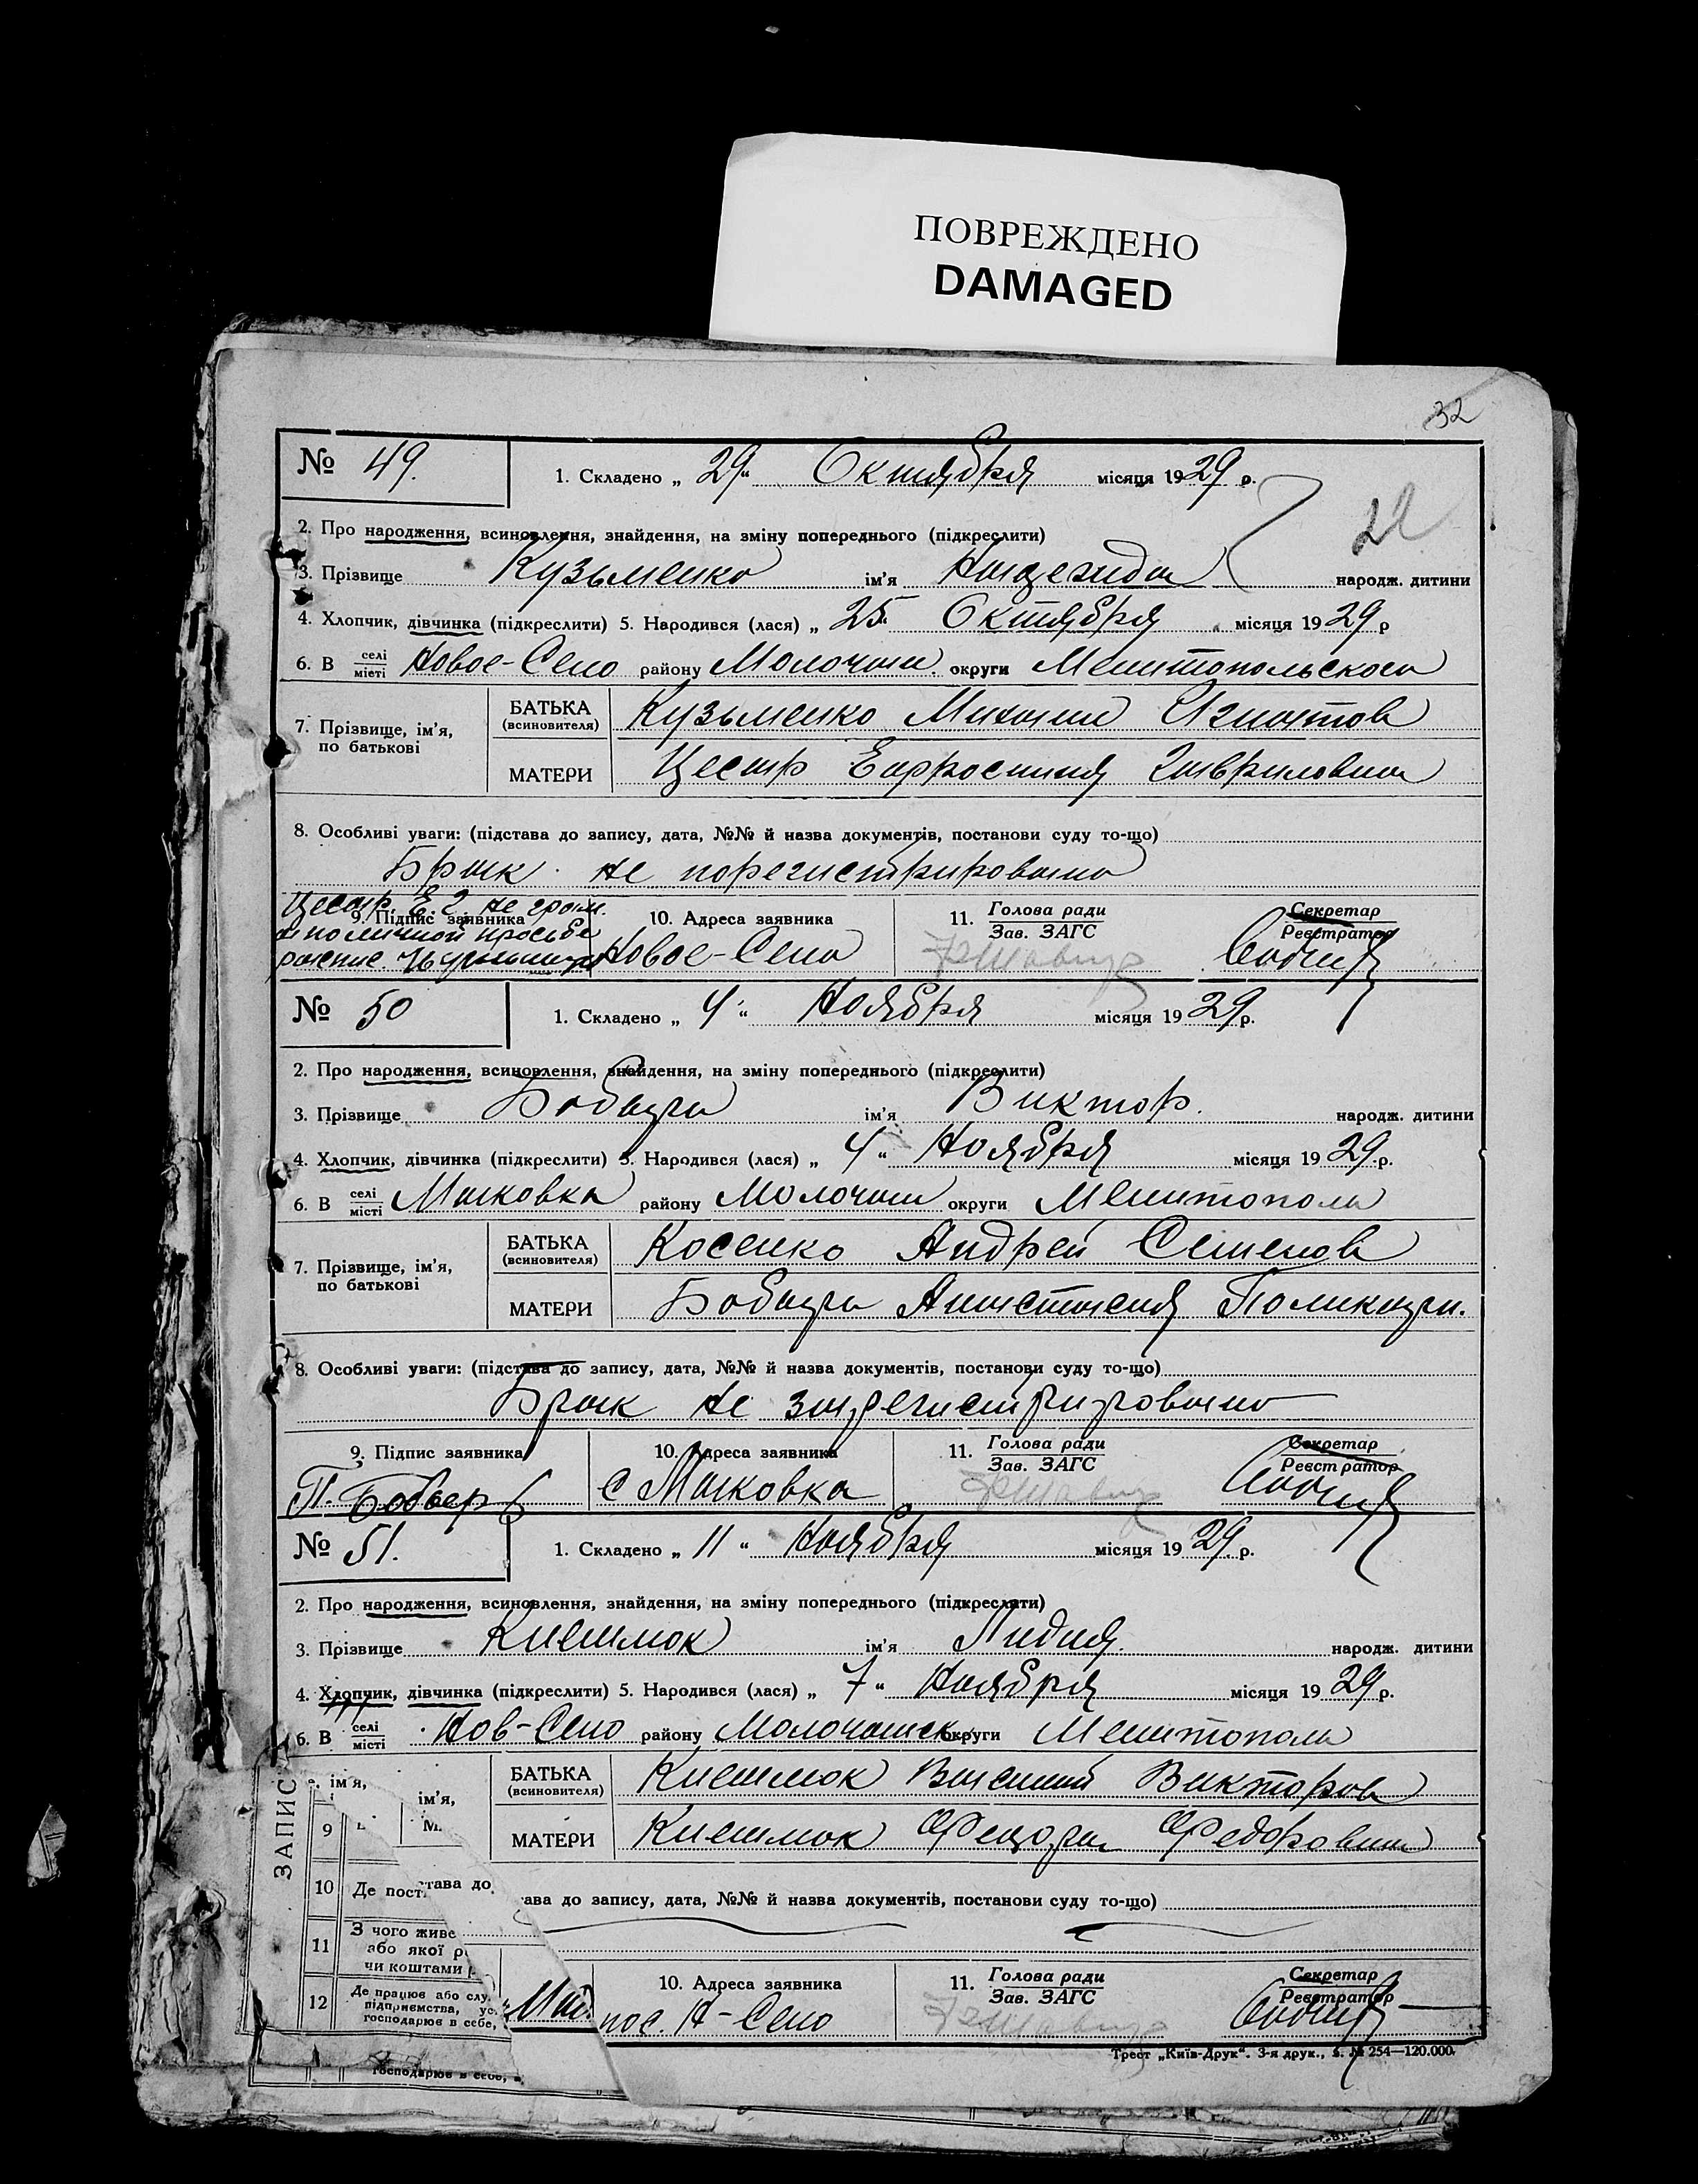 ПОВРЕЖДЕНО
DAMAGED
32
№ 49. 1. Складено „ 29 “ Октября місяця 1929 р.
2. Про народження, всиновлення, знайдення, на зміну попереднього (підкреслити)
3. Прізвище Кузьменко ім'я Надежда народж. дитини
4. Хлопчик, дівчинка (підкреслити) 5. Народився (лася) „ 25 Октября місяця 1929 р
6. В селі місті Новое-Село району Молочан. округи Мелитопольского
7. Прізвище, ім'я, по батькові
БАТЬКА (всиновителя) Кузьменко Михаил Игнатов
МАТЕРИ Цесар Евфросиния Гавриловна
8. Особливі уваги: (підстава до запису, дата, №№ й назва документів, постанови суду то-що)
Брак не порегистрировано
Цесар Е. Г. не грам.
и по личной просьбе
9. Підпис заявника 10. Адреса заявника 11. Голова ради Зав. ЗАГС Секретар Реєстратор
распис. Новое-Село
№ 50 1. Складено „ 4 “ Ноября місяця 1929 р.
2. Про народження, всиновлення, знайдення, на зміну попереднього (підкреслити)
3. Прізвище ім'я Виктор. народж. дитини
4. Хлопчик, дівчинка (підкреслити) 5. Народився (лася) „ 4 “ Ноября місяця 1929 р.
6. В селі місті Маковка району Молочан округи Мелитопол
7. Прізвище, ім'я, по батькові
БАТЬКА (всиновителя) Косенко Андрей Семенов
МАТЕРИ Анастасия Поликар.
8. Особливі уваги: (підстава до запису, дата, №№ й назва документів, постанови суду то-що)
Брак не зарегистрировано
9. Підпис заявника 10. Адреса заявника 11. Голова ради Зав. ЗАГС Секретар Реєстратор
П. с Маковка
№ 51. 1. Складено „ 11 “ Ноября місяця 1929 р.
2. Про народження, всиновлення, знайдення, на зміну попереднього (підкреслити)
3. Прізвище ім'я Лидия. народж. дитини
4. Хлопчик, дівчинка (підкреслити) 5. Народився (лася) „ 7 “ Ноября місяця 1929 р.
6. В селі місті Нов-Село району Молочанск. округи Мелитопол
БАТЬКА (всиновителя) Василий Викторов
МАТЕРИ Федоровна
ЗАПИС
ім'я,
ім'я,
9
10 Де пост
тава до
ава до запису, дата, №№ й назва документів, постанови суду то-що)
11 З чого живе
або якої р
чи коштами
12 Де працює або слу
підприємства, ус
господарює в себе,
10. Адреса заявника 11. Голова ради Зав. ЗАГС Секретар Реєстратор
пос. Н-Село
Трест „Київ-Друк“. 3-я друк., з. № 254—120.000.
господарює в себе,